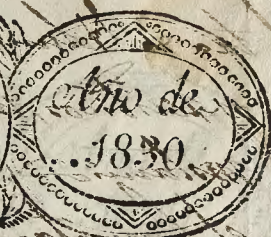 Año de
..1830.